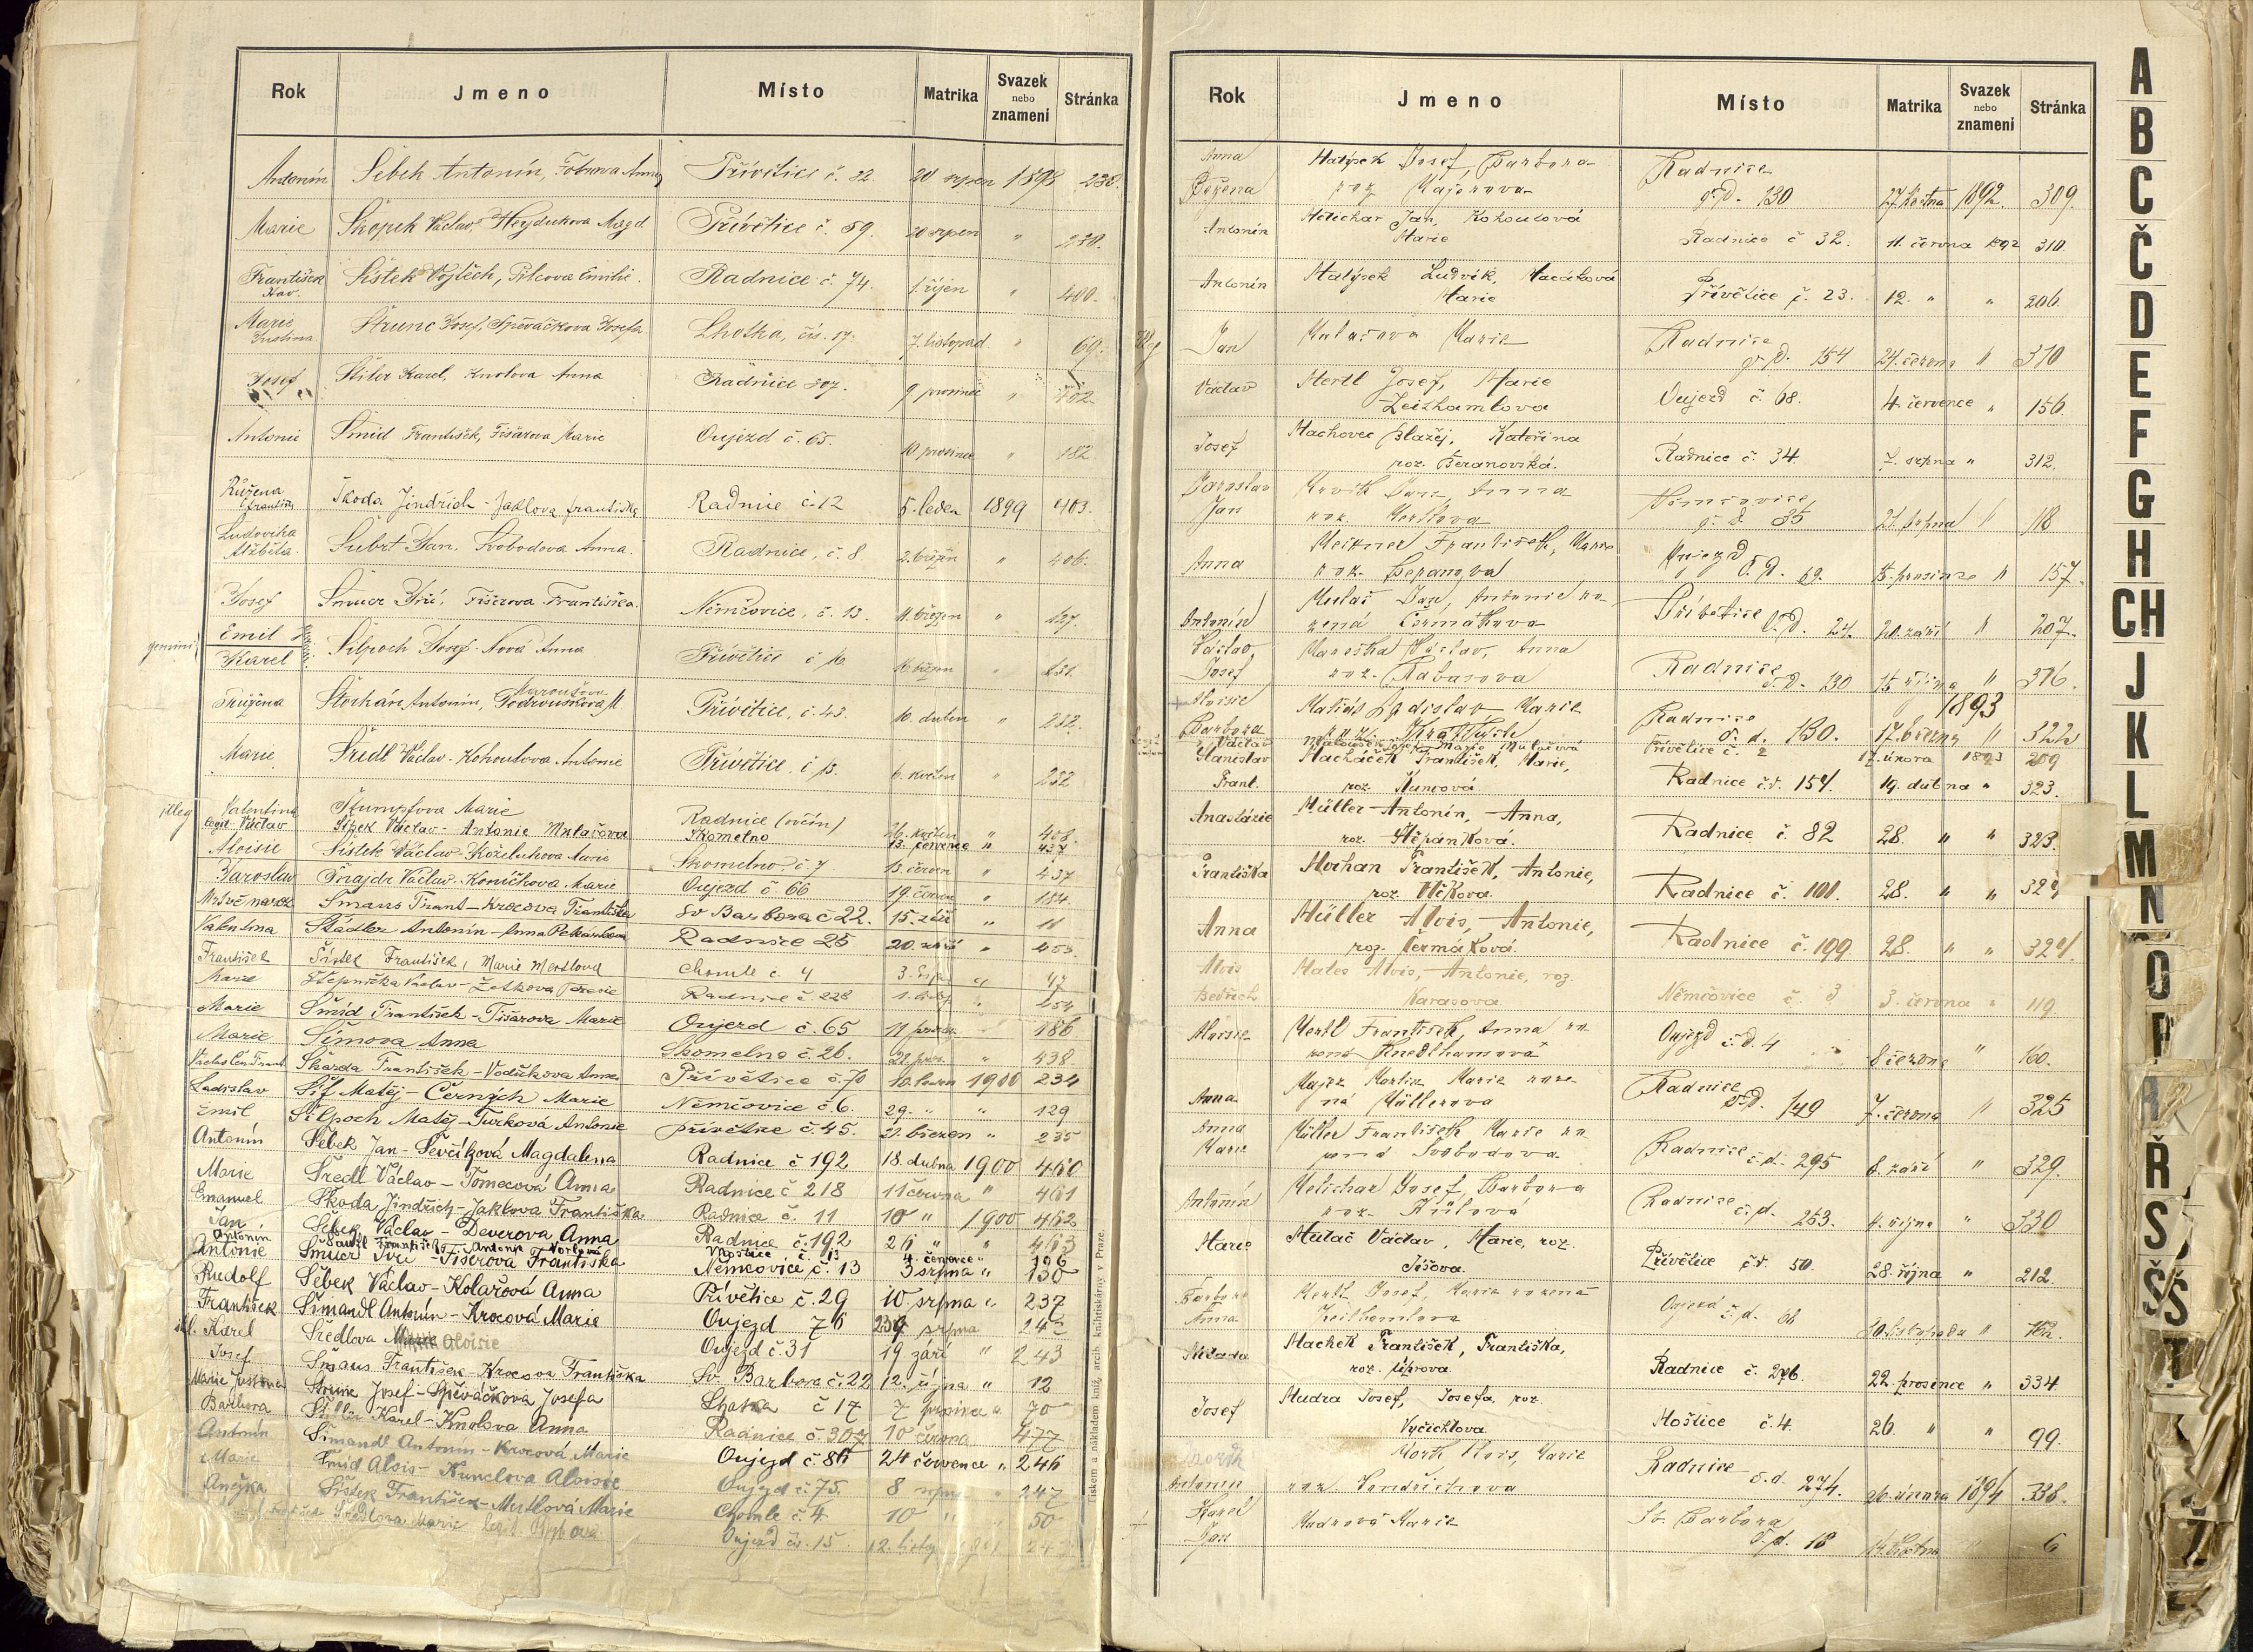 Rok Jmeno Místo Matrika Svazek nebo znamení Stránka
Antonín Šebek Antonín, Anna Přívětice č. 22. 20 srpen 1898 238.
Marie Škopek Václav, Hejduková Magd. Přívětice č. 59. 20 srpen " 238.
František Xav. Šístek Vojtěch, Pilcova Emilie. Radnice č. 74. 1. říjen " 400.
Marie Justina Štrunc Josef, Spěváčkova Josefa. Lhotka, čís. 17. 7. listopad " 69.
Josef Štiler Karel, Knolova Anna Radnice 307. 9 prosinec " 402
Antonie Šmíd František, Fišarova Marie Oujezd č. 65. 10 prosince " 182.
Růžena Františka Škoda Jindřich - Jaklova Františka Radnice č. 12 5. leden 1899 403.
Ludovika Alžběta Šubrt Jan, Svobodova Anna. Radnice, č. 8. 2. březen " 406.
Josef Šmucr Jiří, Fišerova Františka. Němčovice, č. 13. 11. březen " 127.
gemini Emil
Karel Šilpoch Josef - Nová Anna Přívětice č. 16. 16. březen " 231.
Růžena Štorkán Antonín, Maroušova M Přívětice, č. 43. 10. duben " 232.
Marie Šredl Václav - Kohoutova Antonie Přívětice, č. 13. 6. květen " 232
illeg Valentina Štumpfova Marie Radnice (ovčín) 26. květen " 408.
legit. Václav Šípek Václav - Antonie Mutačova Skomelno 13. července " 437
Aloisie Šístek Václav - Koželuhova Marie Skomelno č. 7 13. červen " 437
Jaroslav Šnajdr Václav - Koníčkova Marie Oujezd č. 66 19. červen " 184.
Mrtvě naroz. Šmaus Frant. - Krocova Františka Sv Barbora č 22. 15. září " 11
Valentina Štádler Antonín - Anna Pekárkova Radnice 25 20. září " 453.
František Šístek František, Marie Mertlova Chomle č. 4 3. " 47
Marie Štěpnička Václav - Žetkova Terezie Radnice č. 228 1. " 454
Marie Šmíd František - Fišarova Marie Oujezd č. 65 11 pros. " 186
Marie Šímova Anna Skomelno č. 26. 21. pros. " 438.
Václav Čen. Frant. Škarda František - Vodičkova Anna Přívětice č. 70 10. leden 1900 234
Ladislav Šíf Matěj - Černých Marie Němčovice č. 6. 29. " " 129
Emil Šilpoch Matěj - Turková Antonie Přívětice č. 45. 21. březen " 235
Antonín Šebek Jan - Ševčíková Magdalena Radnice č 192 18. dubna 1900 460
Marie Šredl Václav - Tomecová Anna Radnice č 218 11 června " 461
Emanuel Škoda Jindřich - Jaklova Františka Radnice č. 11 10 " 1900 462
Jan Šebek Václav Deverova Anna Radnice č. 192 26 " " 463
Antonín František - Antonie č. 13 4. července " 106
Antonie Šmucr Jiří - Fišerova Františka Němčovice č. 13 3 srpna " 130
Rudolf Šebek Václav - Kolařová Anna Přívětice č. 29 10. srpna " 237
František Šimandl Antonín - Krocová Marie Oujezd 76 srpna "
Karel Šredlova Aloisie Oujezd č. 31 19 září " 243
Josef Šmaus František - Krocova Františka Sv. Barbora č. 22 12. října " 12
Marie Justina Štrunc Josef - Spěváčkova Josefa Lhotka č 17 7 prosince 70
Barbora Štiller Karel - Knolova Anna Radnice č. 307 10 června 477
Antonín Šimandl Antonín - Krocová Marie Oujezd č. 86 24 července " 246
Marie Šmíd Alois - Kunclova Aloisie Oujezd č. 75. 8 srpna " 247
Anežka Šístek František - Mertlová Marie Chomle č. 4 10 " 50
Šredlova Marie legit. Oujezd čp. 15. 12. listop.
Tiskem a nákladem kniž. arcib. knihtiskárny v Praze.
Rok Jmeno Místo Matrika Svazek nebo znamení Stránka
Anna Matýsek Josef, Barbora Radnice
Božena roz. Majerova č. d. 130 27. května 1892. 309.
Antonín Melichar Jan, Kohoutová
Marie Radnice č 32. 11. června 1892 310
Antonín Matýsek Ludvík, Macáková
Marie Přívětice č. 23. 12. " " 206.
Jan Mulačova Marie Radnice č. d. 154 24. června " 310
Václav Mertl Josef, Marie
Zeithamlova Oujezd č. 68. 4. července " 156.
Josef Machovec Blažěj, Kateřina
roz. Beranovská. Radnice č. 34. 7. srpna " 312.
Jaroslav Anna Němčovice
Jan roz. Mertlova č. d. 35 21. srpna " 118
Anna Meixner František, Marie
roz. Beranova Oujezd č. d. 69. 15. prosince " 157.
Antonín Mulač Jan, Antonie ro-
zená Čermákova Přívětice č. d. 24. 20. září " 207.
Václav Mareška Václav, Anna
Josef roz. Rabasova Radnice č. d. 130 15. října " 316.
Aloisie Matiáš Ladislav Marie Radnice 1893
Barbora roz. Kratochvíle č. d. 130. 17. března " 322
Václav Matoušek Josef, Marie Mulačová Přívětice č. 2 17. února 1893 209
Stanislav Macháček František, Marie,
Frant. roz. Kuncová Radnice č. d. 154. 19. dubna " 323.
Anastázie Müller Antonín, Anna,
roz. Štěpánková. Radnice č. 82 28. " " 323.
Františka Mochan František, Antonie,
roz. Vlčkova Radnice č. 101. 28. " " 324
Anna Müller Alois, Antonie,
roz. Čermáková. Radnice č. 199. 28. " " 324.
Alois Mates Alois, Antonie, roz.
Bedřich Karasova Němčovice č. 3 3. června " 119
Aloisie Mertl František, Anna ro-
zená Knedlhansová Oujezd č. d. 4 8 června " 160.
Anna Majer Martin Marie roze-
ná Müllerova Radnice č. d. 149 7. června " 325
Anna Müller František Marie ro-
Marie zená Svobodova Radnice č. d. 295 6. září " 329.
Antonín Melichar Josef, Barbora
roz. Radnice č. d. 253. 4. října " 330
Marie Mulač Václav, Marie, roz.
Ježova. Přívětice č. d. 50. 28. října " 212.
Barbora Mertl Josef, Marie rozená
Anna Zeithamlova Oujezd č. d. 68 10. listopadu " 162.
Machek František, Františka,
roz. Liprova Radnice č. 276. 22. prosince " 334.
Josef Mudra Josef, Josefa, roz.
Vyčichlova. Hoštice č. 4. 26. " " 99.
Alois, Marie
Antonín roz. Vondrichova Radnice č. d. 274. 26. února 1894 338.
Karel Mudrová Marie Sv. Barbora
Jan č. d. 18 14. května " 6
A
B
C
Č
D
E
F
G
H
CH
J
K
L
M
N
O
P
R
Ř
S
Š
T